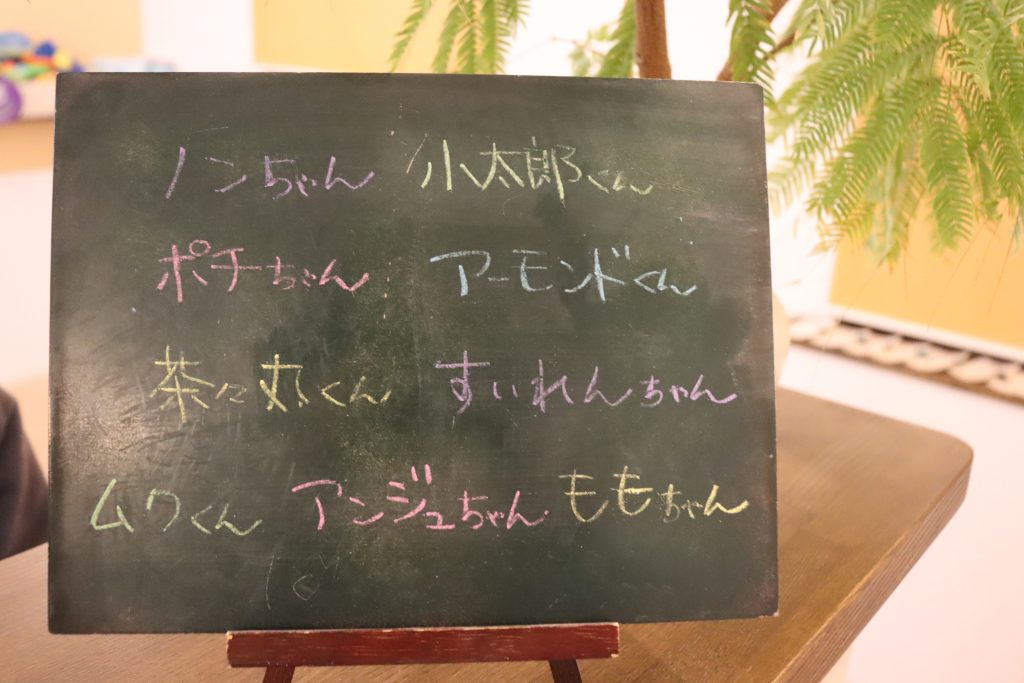 ノンちゃん 小太郎くん
ポチちゃん アーモンドくん
茶々丸くん すいれんちゃん
ムクくん アンジュちゃん ももちゃん